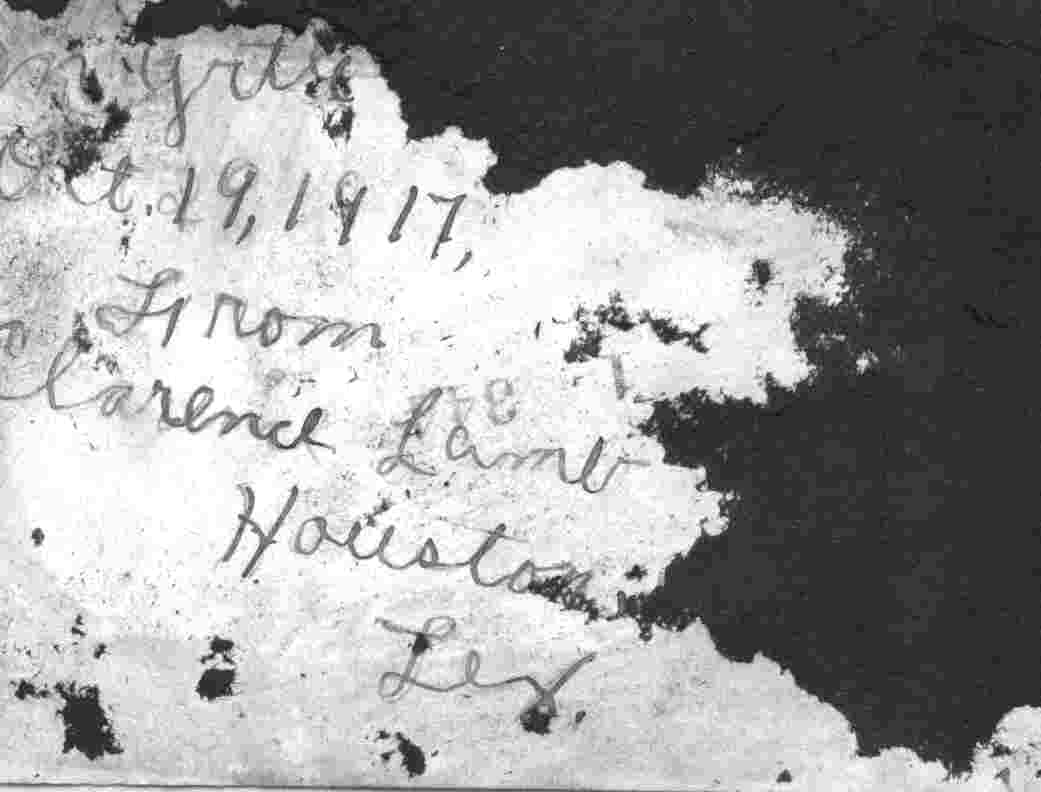 Myrtle
Oct. 19, 1917,
From
Clarence Lamb
Houston
Tex